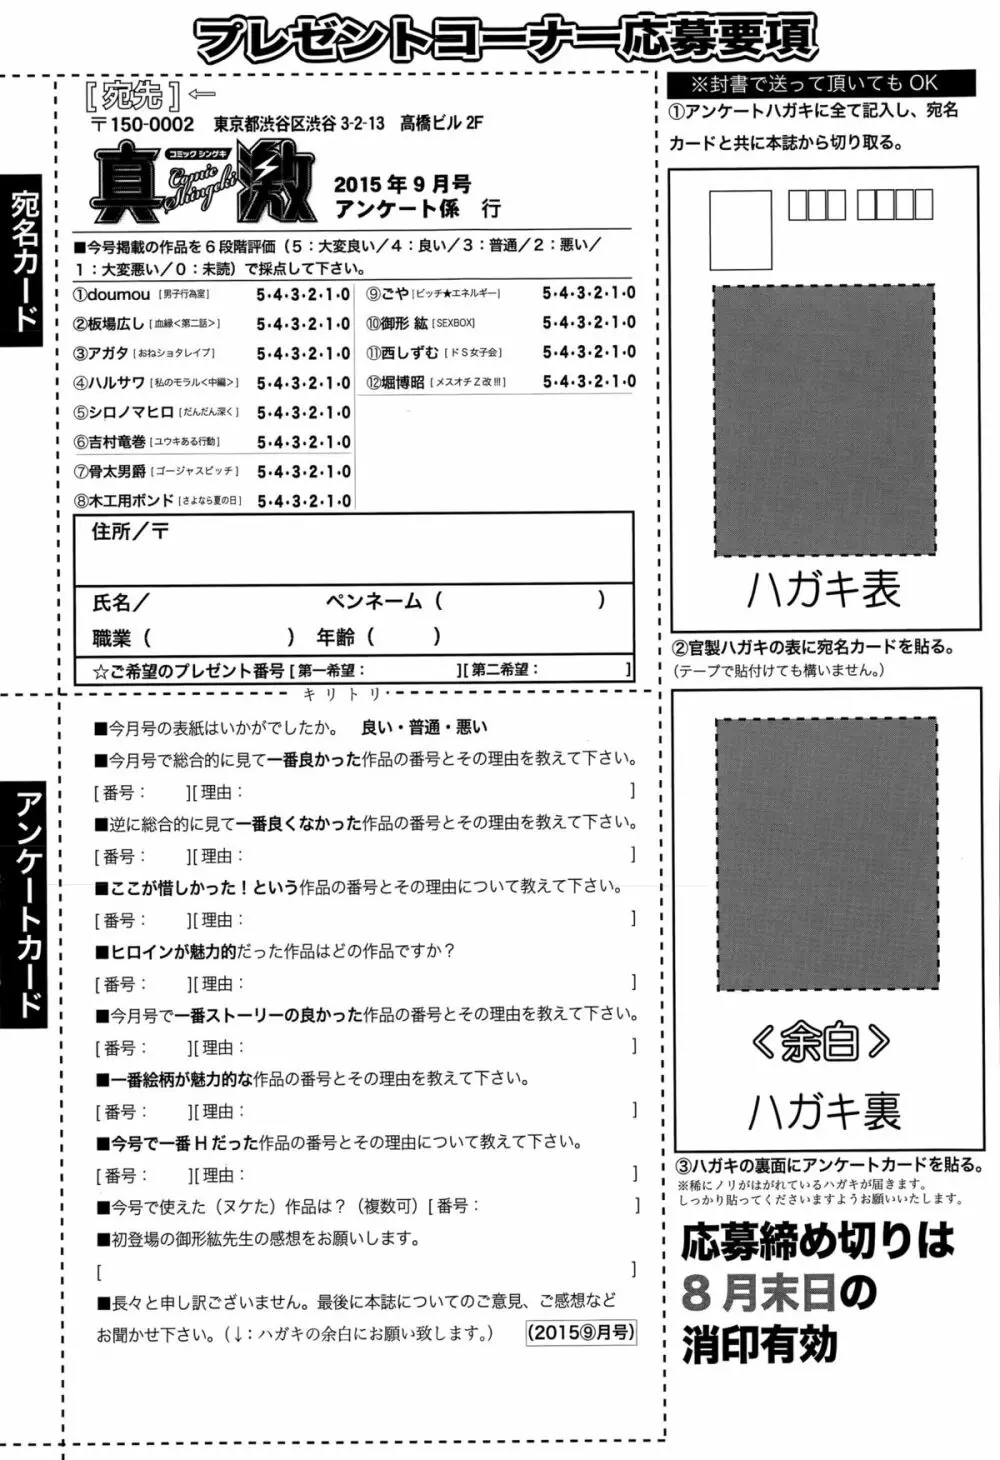 プレゼントコーナー応募要項
宛名カード
[宛先]←
〒150-0002 東京都渋谷区渋谷 3-2-13 高橋ビル 2F
コミック シンゲキ
真激
Comic Shingeki
2015 年 9 月号
アンケート係 行
■今号掲載の作品を 6 段階評価（5：大変良い／4：良い／3：普通／2：悪い／
1：大変悪い／0：未読）で採点して下さい。
①doumou [男子行為室] 5・4・3・2・1・0
②板場広し [血縁<第二話>] 5・4・3・2・1・0
③アガタ [おねショタレイプ] 5・4・3・2・1・0
④ハルサワ [私のモラル<中編>] 5・4・3・2・1・0
⑤シロノマヒロ [だんだん深く] 5・4・3・2・1・0
⑥吉村竜巻 [ユウキある行動] 5・4・3・2・1・0
⑦骨太男爵 [ゴージャスビッチ] 5・4・3・2・1・0
⑧木工用ボンド [さよなら夏の日] 5・4・3・2・1・0
⑨ごや [ビッチ★エネルギー] 5・4・3・2・1・0
⑩御形 紘 [SEXBOX] 5・4・3・2・1・0
⑪西しずむ [ドS女子会] 5・4・3・2・1・0
⑫堀博昭 [メスオチZ改!!!] 5・4・3・2・1・0
住所／〒
氏名／ ペンネーム（ ）
職業（ ） 年齢（ ）
☆ご希望のプレゼント番号 [ 第一希望： ][ 第二希望： ]
キリトリ
アンケートカード
■今月号の表紙はいかがでしたか。 良い・普通・悪い
■今月号で総合的に見て一番良かった作品の番号とその理由を教えて下さい。
[ 番号： ][ 理由： ]
■逆に総合的に見て一番良くなかった作品の番号とその理由を教えて下さい。
[ 番号： ][ 理由： ]
■ここが惜しかった！という作品の番号とその理由について教えて下さい。
[ 番号： ][ 理由： ]
■ヒロインが魅力的だった作品はどの作品ですか？
[ 番号： ][ 理由： ]
■今月号で一番ストーリーの良かった作品の番号とその理由を教えて下さい。
[ 番号： ][ 理由： ]
■一番絵柄が魅力的な作品の番号とその理由を教えて下さい。
[ 番号： ][ 理由： ]
■今号で一番 H だった作品の番号とその理由について教えて下さい。
[ 番号： ][ 理由： ]
■今号で使えた（ヌケた）作品は？（複数可）[ 番号： ]
■初登場の御形紘先生の感想をお願いします。
[ ]
■長々と申し訳ございません。最後に本誌についてのご意見、ご感想など
お聞かせ下さい。（↓：ハガキの余白にお願い致します。） (2015⑨月号)
※封書で送って頂いてもOK
①アンケートハガキに全て記入し、宛名
カードと共に本誌から切り取る。
ハガキ表
②官製ハガキの表に宛名カードを貼る。
（テープで貼付けても構いません。）
<余白>
ハガキ裏
③ハガキの裏面にアンケートカードを貼る。
※稀にノリがはがれているハガキが届きます。
しっかり貼ってくださいますようお願いいたします。
応募締め切りは
8 月末日の
消印有効